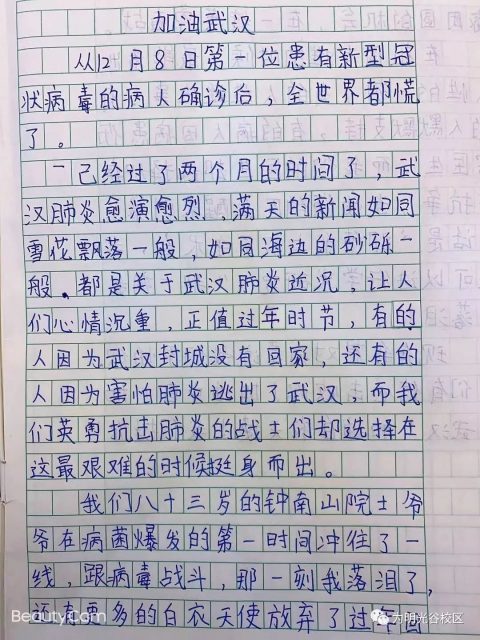 加油武汉
从12月8日第一位患有新型冠
状病毒的病人确诊后，全世界都慌
了。
已经过了两个月的时间了，武
汉肺炎愈演愈烈，满天的新闻如同
雪花飘落一般，如同海边的砂砾一
般。都是关于武汉肺炎近况，让人
们心情沉重，正值过年时节，有的
人因为武汉封城没有回家，还有的
人因为害怕肺炎逃出了武汉，而我
们英勇抗击肺炎的战士们却选择在
这最艰难的时候挺身而出。
我们八十三岁的钟南山院士爷
爷在病菌爆发的第一时间冲往了一
线，跟病毒战斗，那一刻我落泪了，
还有更多的白衣天使放弃了过年回
BeautyCam.com
方明光谷校区